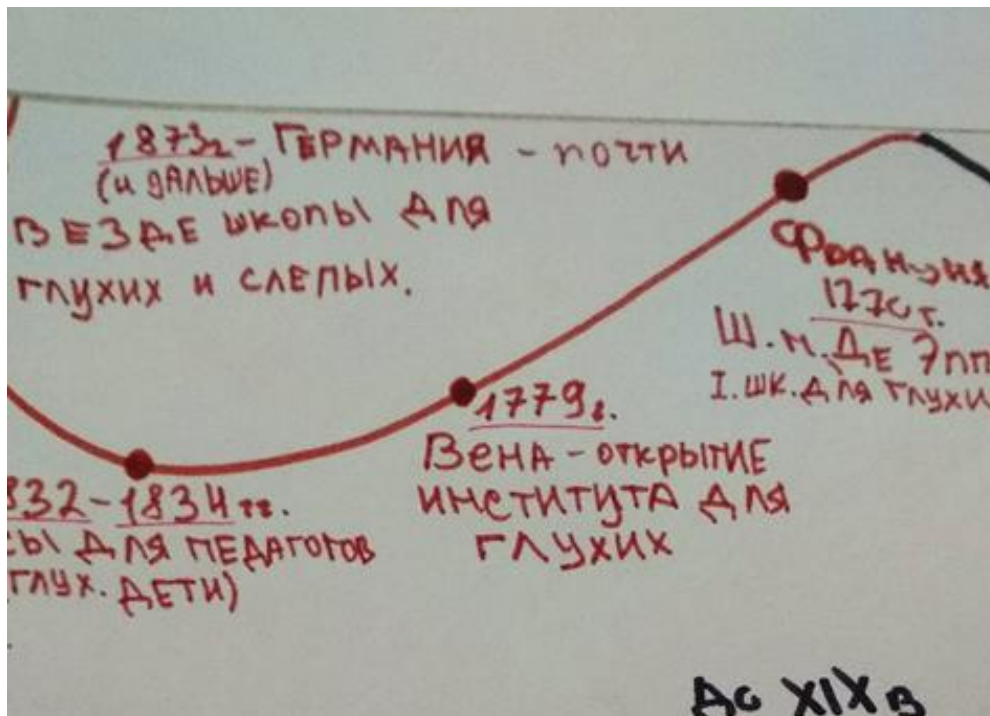 1873г - ГЕРМАНИЯ - почти
(и дальше)
ВЕЗДЕ школы для
глухих и слепых.
Франция
1770г.
Ш.М. Де Эпп
I. шк. для глухи
1779г.
Вена - открытие
института для
глухих
832-1834 гг.
сы для педагогов
глух. дети)
До XIX в